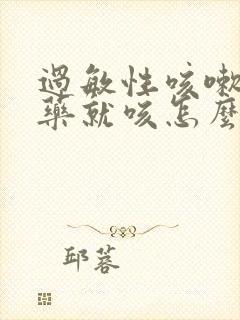 過敏性咳嗽
藥就咳怎麼
邱蓉